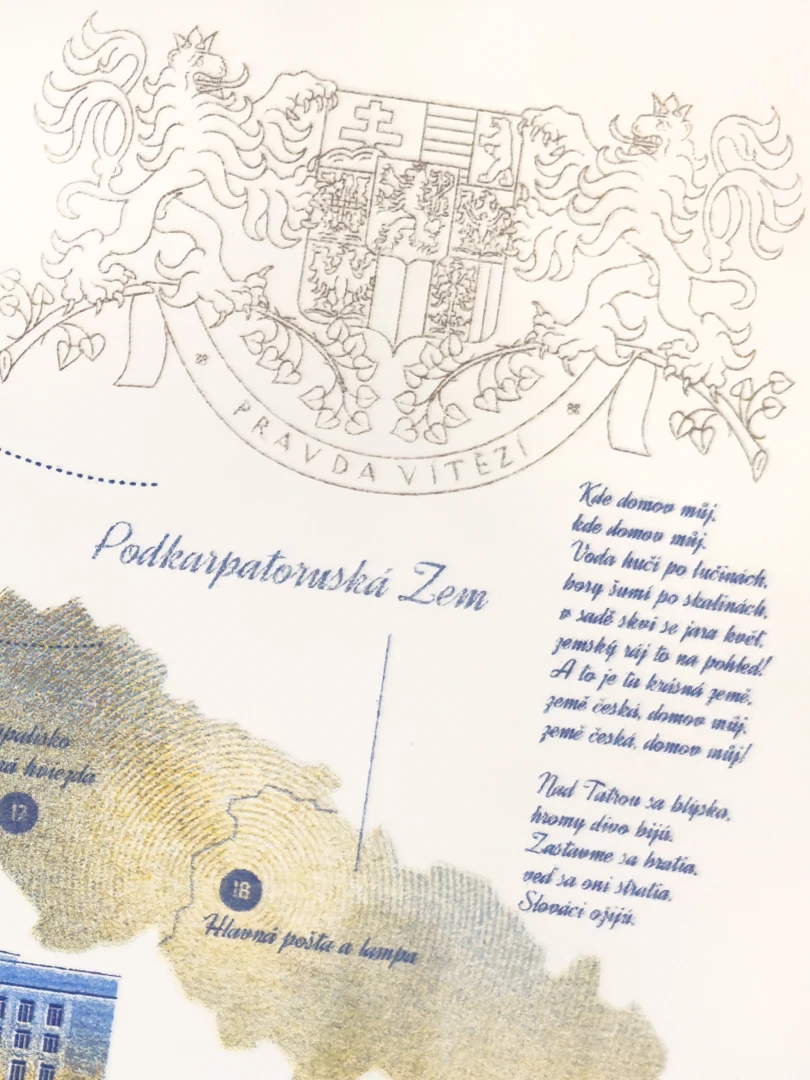 PRAVDA VÍTĚZÍ
Podkarpatoruská Zem
Kde domov můj,
kde domov můj.
Voda hučí po lučinách,
bory šumí po skalinách,
v sadě skví se jara květ,
zemský ráj to na pohled!
A to je ta krásná země,
země česká, domov můj,
země česká, domov můj!
Nad Tatrou sa blýska,
hromy divo bijú.
Zastavme sa bratia,
veď sa oni stratia,
Slováci ožijú.
hviezda
17
18
Hlavná pošta a lampa